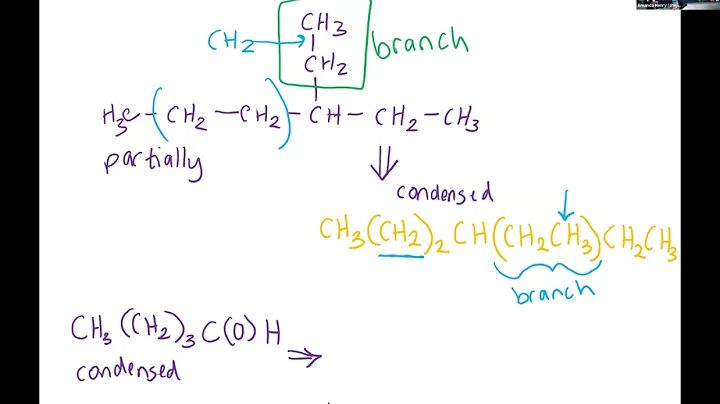 CH3
CH2
branch
CH2
H3C - (CH2 - CH2) - CH - CH2 - CH3
partially
condensed
CH3(CH2)2CH(CH2CH3)CH2CH3
branch
CH3(CH2)3C(O)H
condensed